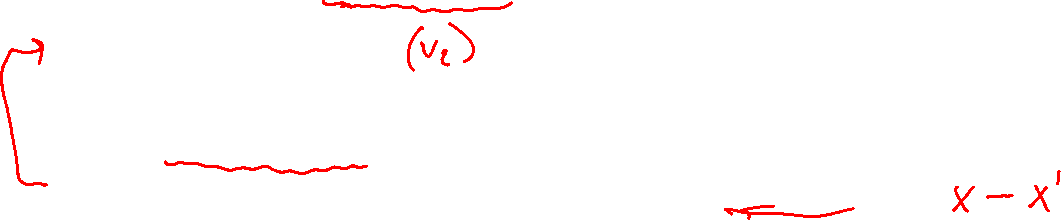 (v₂)
x - x'